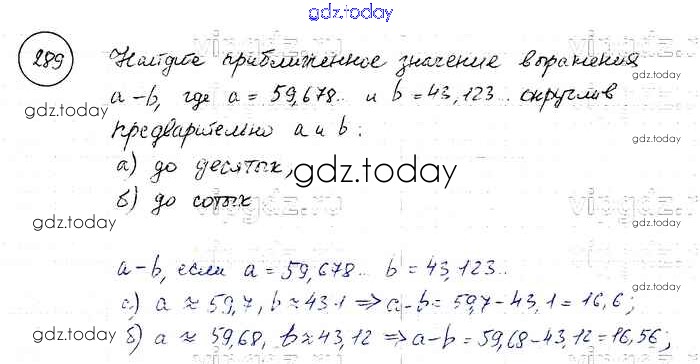 gdz.today
289 Найдите приближенное значение выражения
gdz.today
a-b, где a = 59,678... и b = 43,123... округлив
gdz.today
предварительно a и b:
gdz.today
а) до десятых,
gdz.today
б) до сотых
gdz.today
a-b, если a = 59,678... b = 43,123...
а) a ≈ 59,7, b ≈ 43,1 ⟹ a-b = 59,7-43,1 = 16,6;
б) a ≈ 59,68, b ≈ 43,12 ⟹ a-b = 59,68-43,12 = 16,56;
gdz.today
gdz.today